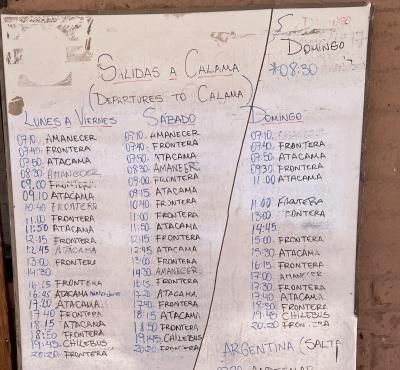 DOMINGO
SALIDAS A CALAMA
DOMINGO
*08:30
(DEPARTURES TO CALAMA)
LUNES A VIERNES
07:10 AMANECER
07:40 FRONTERA
07:50 ATACAMA
08:30 AMANECER
09:00 FRONTERA
09:10 ATACAMA
10:40 FRONTERA
11:00 FRONTERA
11:50 ATACAMA
12:15 FRONTERA
12:45 ATACAMA
13:00 FRONTERA
14:30
16:15 FRONTERA
16:45 ATACAMA
17:20 ATACAMA
17:40 FRONTERA
18:15 ATACAMA
18:50 FRONTERA
19:45 CHILEBUS
20:20 FRONTERA
SÁBADO
07:10 AMANECER
07:40 FRONTERA
07:50 ATACAMA
08:30 AMANECER
09:00 FRONTERA
09:15 ATACAMA
10:40 FRONTERA
11:00 FRONTERA
11:50 ATACAMA
12:15 FRONTERA
12:45 ATACAMA
13:00 FRONTERA
14:30 AMANECER
16:15 FRONTERA
17:20 ATACAMA
17:40 FRONTERA
18:15 ATACAMA
18:50 FRONTERA
19:45 CHILEBUS
20:20 FRONTERA
DOMINGO
07:10 AMANECER
07:40 FRONTERA
07:50 ATACAMA
09:30 FRONTERA
11:00 ATACAMA
11:00 FRONTERA
13:00 FRONTERA
14:45
15:00 FRONTERA
15:30 ATACAMA
16:15 FRONTERA
17:00 AMANECER
17:30 FRONTERA
17:40 ATACAMA
18:50 FRONTERA
19:45 CHILEBUS
20:20 FRONTERA
ARGENTINA (SALTA